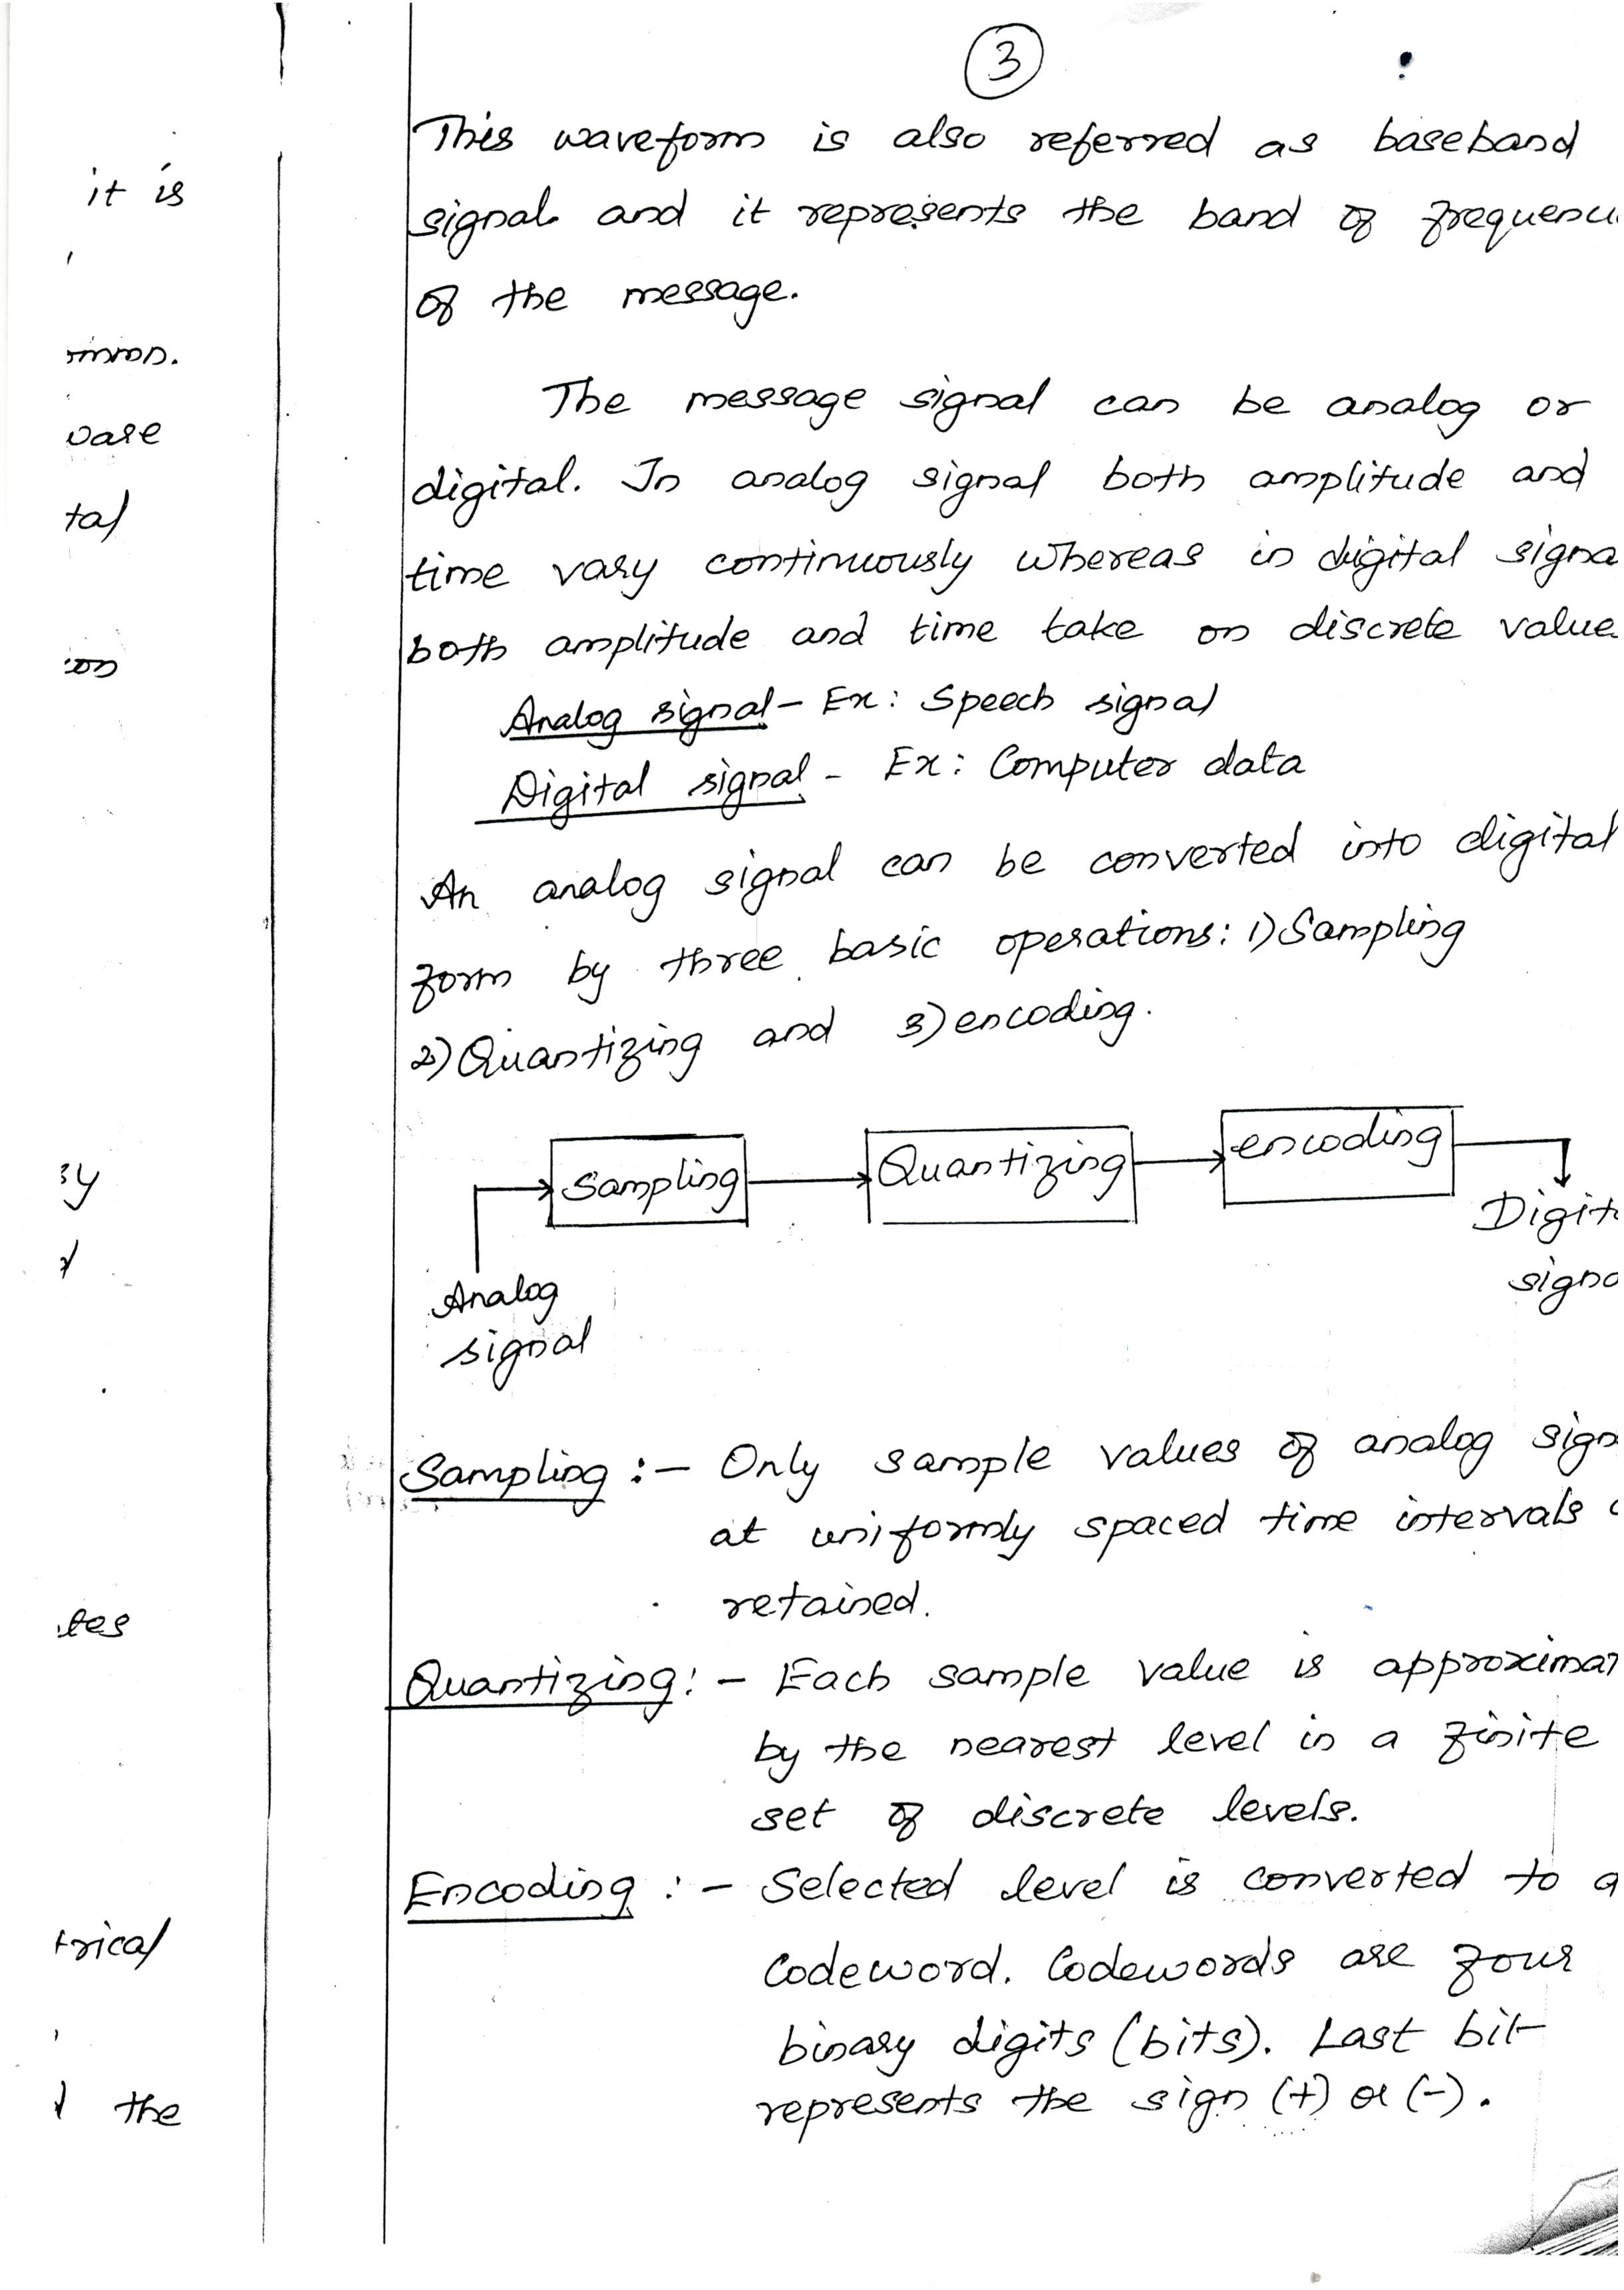 3
This waveform is also referred as baseband
signal and it represents the band of frequenci
of the message.
The message signal can be analog or
digital. In analog signal both amplitude and
time vary continuously whereas in digital signa
both amplitude and time take on discrete value
Analog signal - Ex: Speech signal
Digital signal - Ex: Computer data
An analog signal can be converted into digital
form by three basic operations: 1) Sampling
2) Quantizing and 3) encoding.
Sampling
Quantizing
encoding
Analog
signal
Digit
signa
Sampling :- Only sample values of analog sign
at uniformly spaced time intervals
retained.
Quantizing :- Each sample value is approximat
by the nearest level in a finite
set of discrete levels.
Encoding :- Selected level is converted to a
Codeword. Codewords are four
binary digits (bits). Last bit
represents the sign (+) or (-).
it is
tal
trical
the